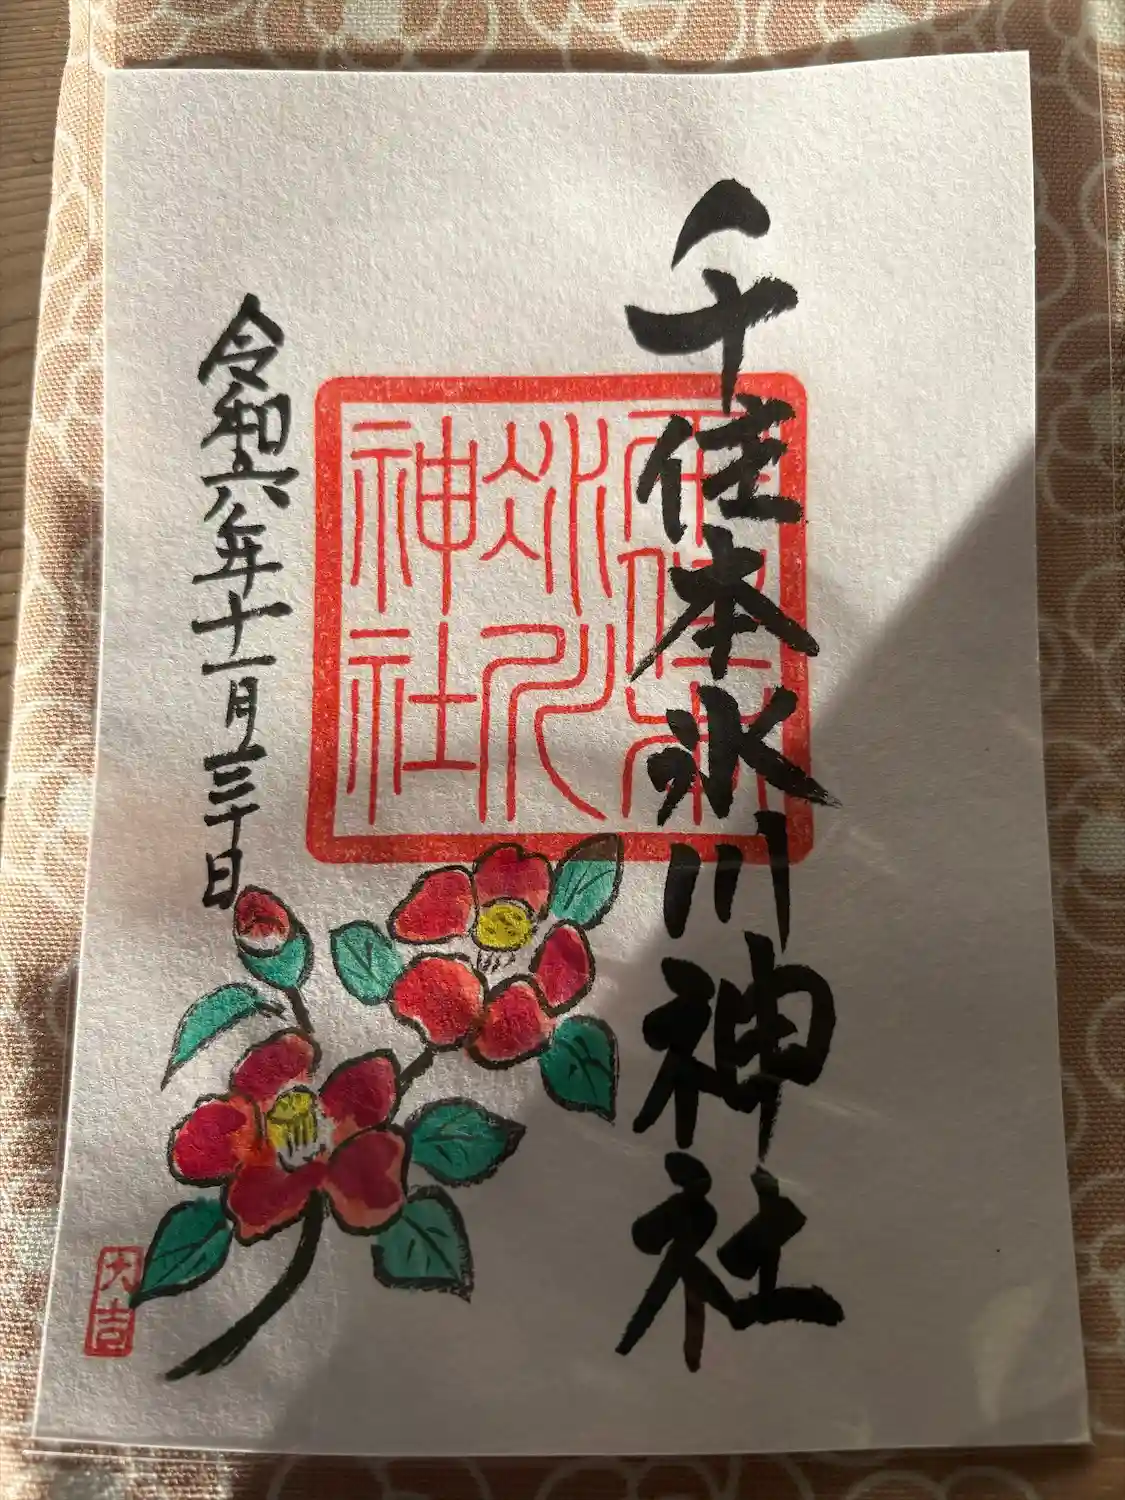 千住本氷川神社
千住本
氷川
神社
令和六年十一月三十日
大吉